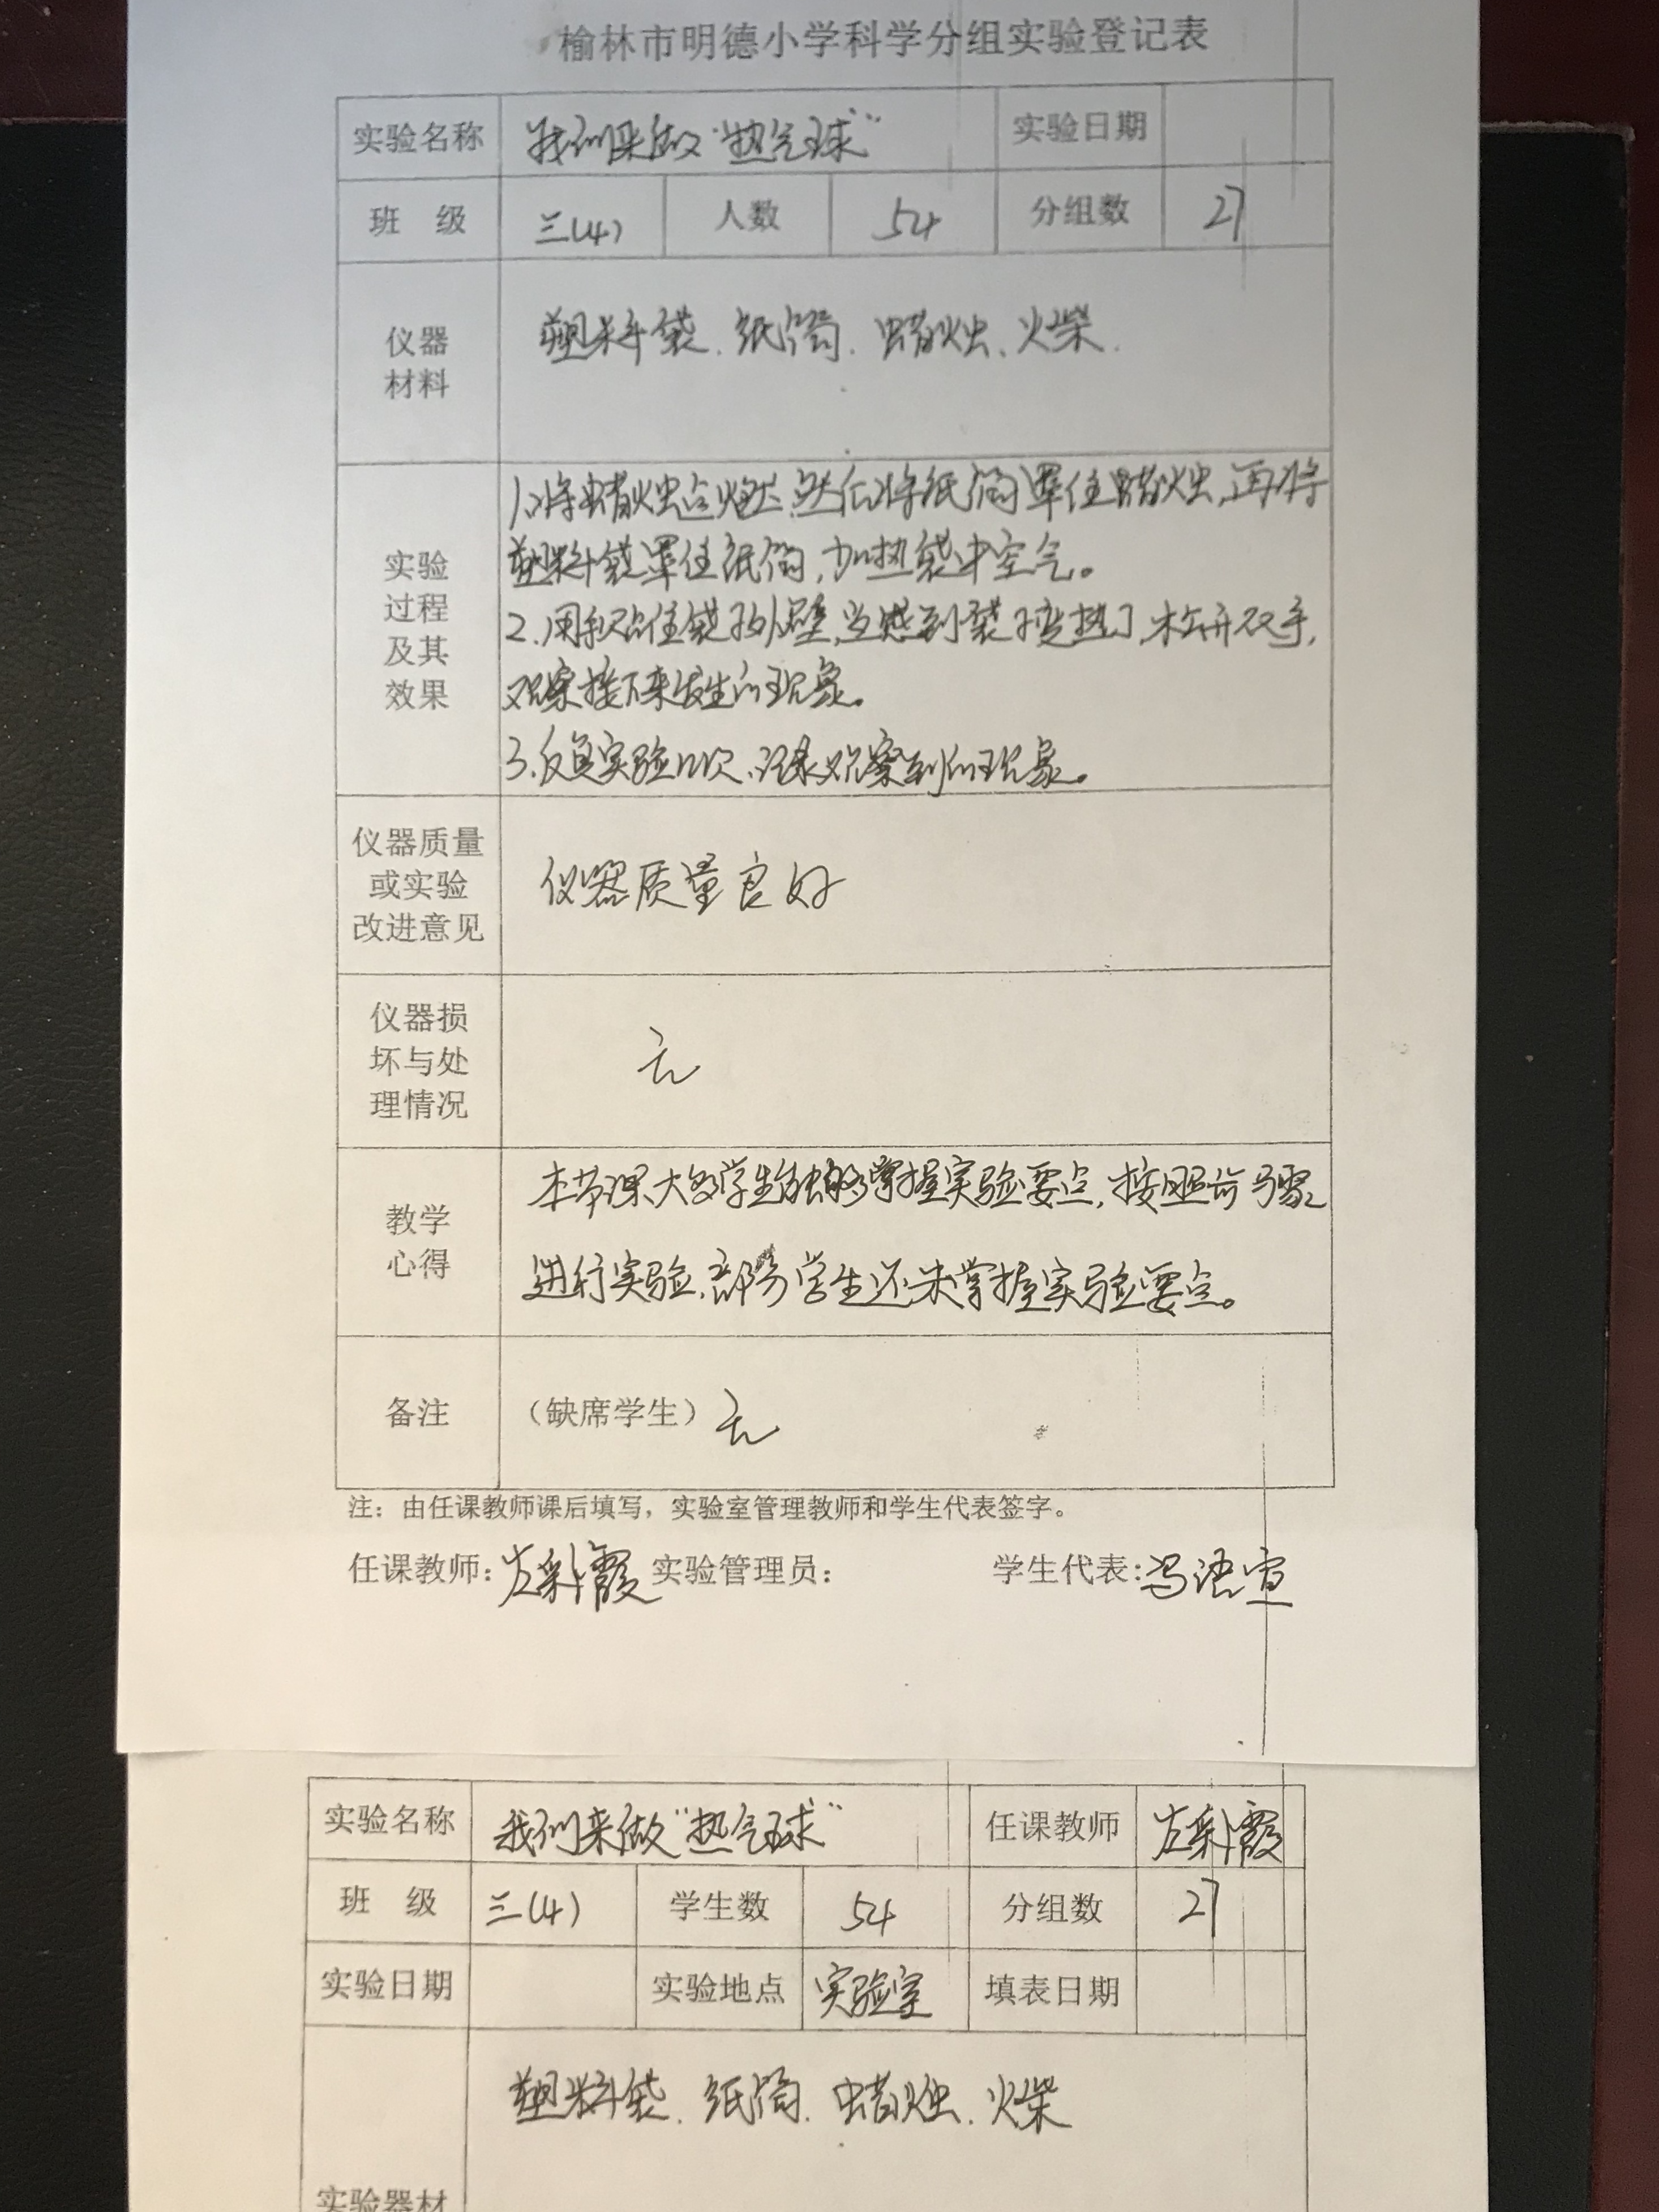 榆林市明德小学科学分组实验登记表
实验名称 我们来做“热气球” 实验日期
班 级 三(4) 人数 54 分组数 27
仪器材料 塑料袋、纸筒、蜡烛、火柴.
实验过程及其效果
1.将蜡烛点燃,然后将纸筒罩住蜡烛,再将
塑料袋罩住纸筒,加热袋中空气。
2.用手轻住袋子外壁,当感到袋子变热了,松开双手,
观察接下来发生的现象。
3.反复实验几次,记录观察到的现象。
仪器质量或实验改进意见 仪器质量良好
仪器损坏与处理情况 无
教学心得
本节课大多学生能够掌握实验要点,按照步骤
进行实验,部分学生还未掌握实验要点。
备注 （缺席学生）无
注：由任课教师课后填写，实验室管理教师和学生代表签字。
任课教师：左彩霞 实验管理员： 学生代表：冯语宣
实验名称 我们来做“热气球” 任课教师 左彩霞
班 级 三(4) 学生数 54 分组数 27
实验日期 实验地点 实验室 填表日期
塑料袋、纸筒、蜡烛、火柴
实验器材